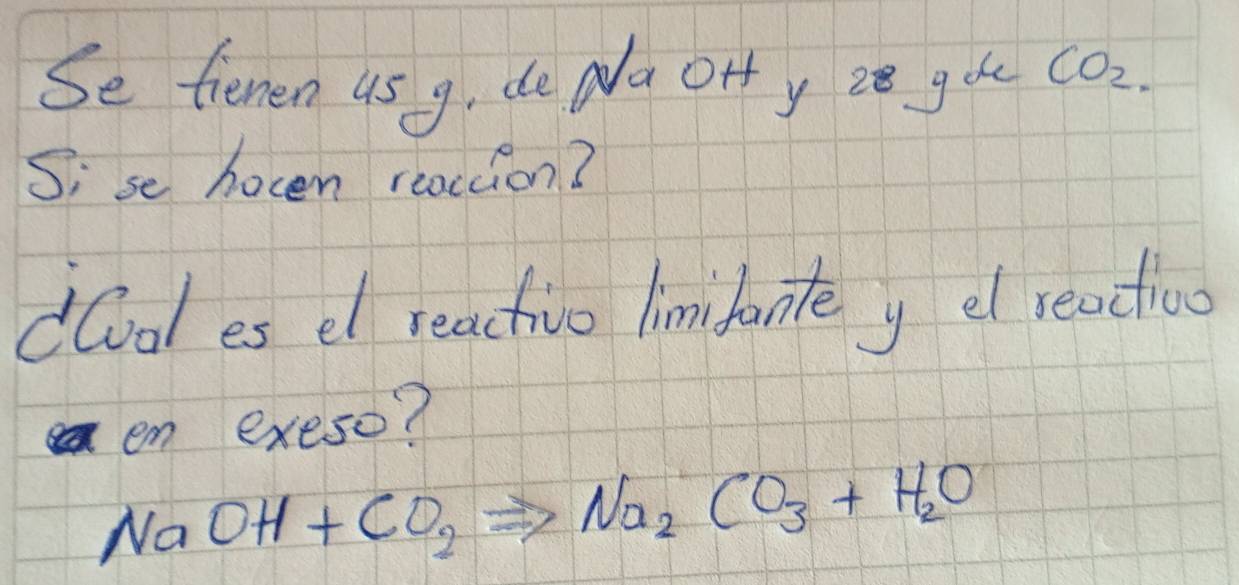 Se tienen 45 g. de NaOH y 28 g de CO₂.
Si se hacen reaccion?
¿Cual es el reactivo limitante y el reactivo
en exeso?
NaOH + CO₂ ⇒ Na₂CO₃ + H₂O